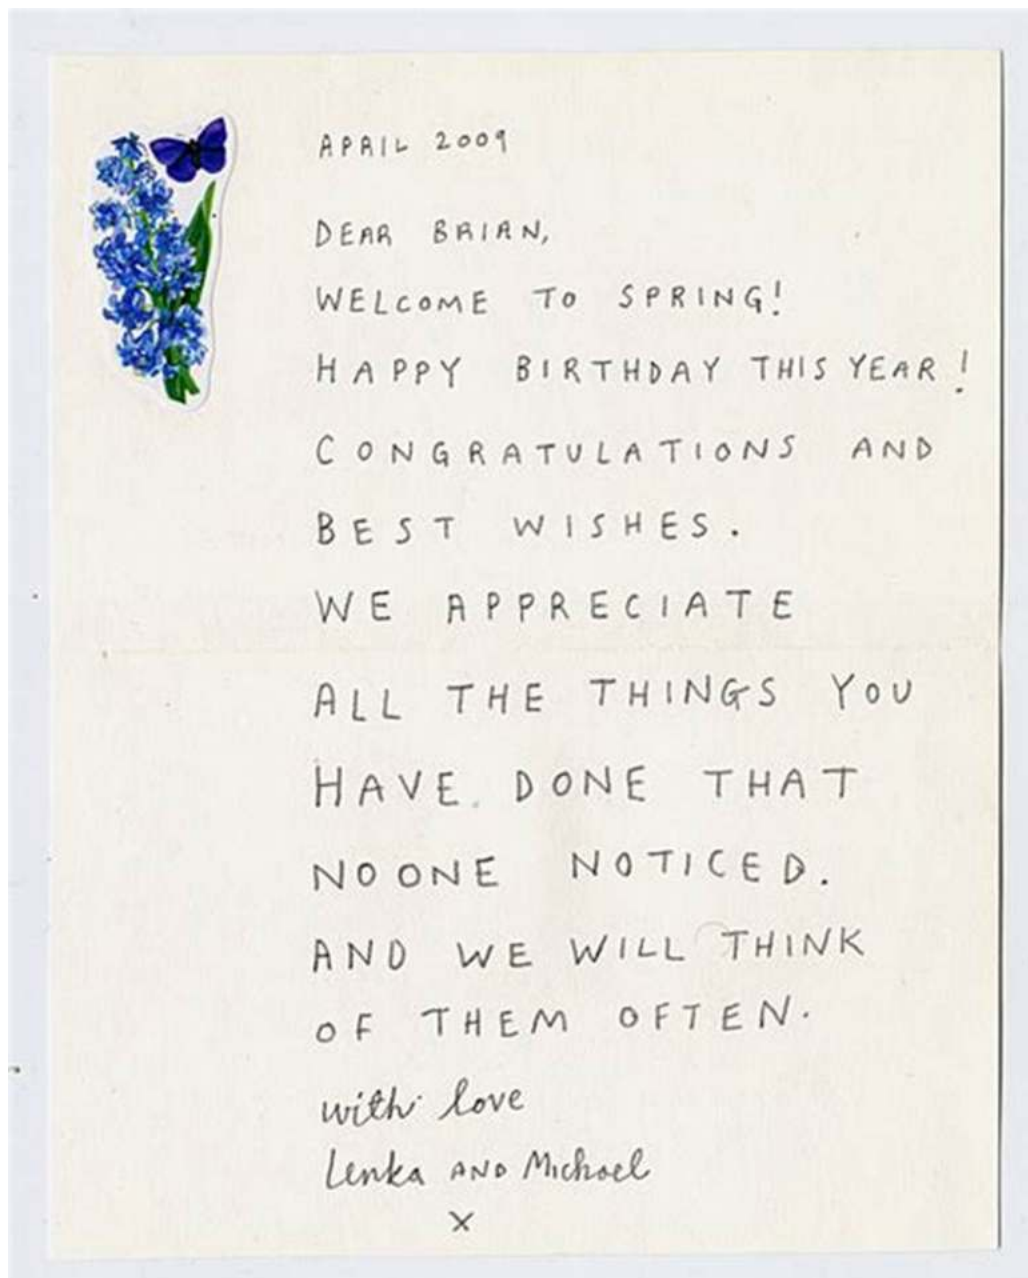 APRIL 2009
DEAR BRIAN,
WELCOME TO SPRING!
HAPPY BIRTHDAY THIS YEAR!
CONGRATULATIONS AND
BEST WISHES.
WE APPRECIATE
ALL THE THINGS YOU
HAVE DONE THAT
NOONE NOTICED.
AND WE WILL THINK
OF THEM OFTEN.
with love
Lenka AND Michael
X